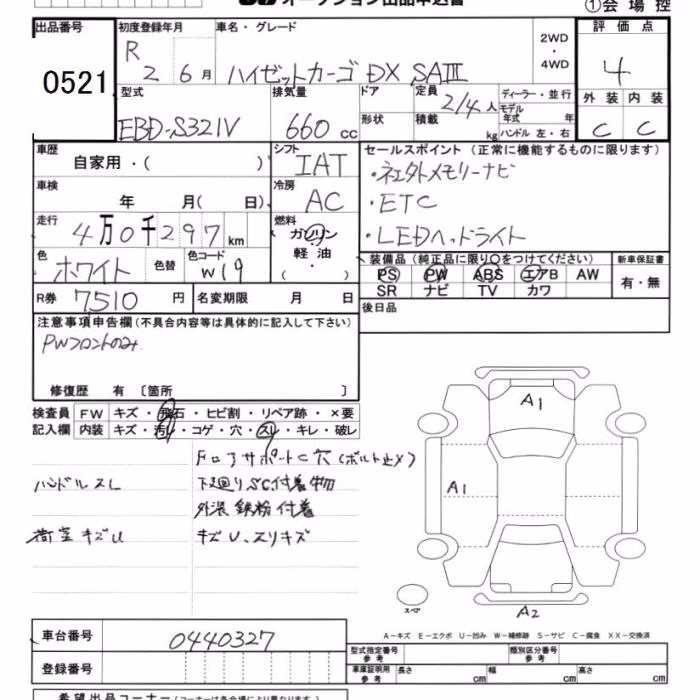 オークション出品申込書
①会場控
出品番号
0521
初度登録年月
R 2 6月
車名・グレード
ハイゼットカーゴ DX SAⅢ
2WD
・
4WD
評価点
4
外装 内装
C C
型式
EBD-S321V
排気量
660 cc
ドア
形状
定員
2/4人
積載
kg
ディーラー・並行
モデル年式 年
ハンドル 左・右
車歴
自家用・( )
シフト
IAT
車検
年 月( 日)
冷房
AC
走行
4万0千297km
燃料
ガソリン
軽油
( ・ )
色
ホワイト
色替
色コード
W19
R券 7510 円
名変期限 月 日
セールスポイント (正常に機能するものに限ります)
・社外メモリーナビ
・ETC
・LEDヘッドライト
装備品 (純正品に限り○をつけてください)
PS PW ABS エアB AW
SR ナビ TV カワ
新車保証書
有・無
後日品
注意事項申告欄 (不具合内容等は具体的に記入して下さい)
PWフロントのみ
修復歴 有 〔箇所 〕
検査員 FW キズ・飛石・ヒビ割・リペア跡・×要
記入欄 内装 キズ・汚レ・コゲ・穴・スレ・キレ・破レ
Fロアサポート C穴 (ボルト止メ)
ハンドルスレ
下廻りSC付着物
外装 鉄粉付着
荷室キズU
キズU、スリキズ
A1
A1
スペア
A2
A-キズ E-エクボ U-凹み W-補修跡 S-サビ C-腐食 XX-交換済
車台番号 0440327
登録番号
型式指定番号 参考
類別区分番号 参考
車庫証明用 参考 長さ cm 幅 cm 高さ cm
希望出品コーナー (コーナーは各会場により異なります)